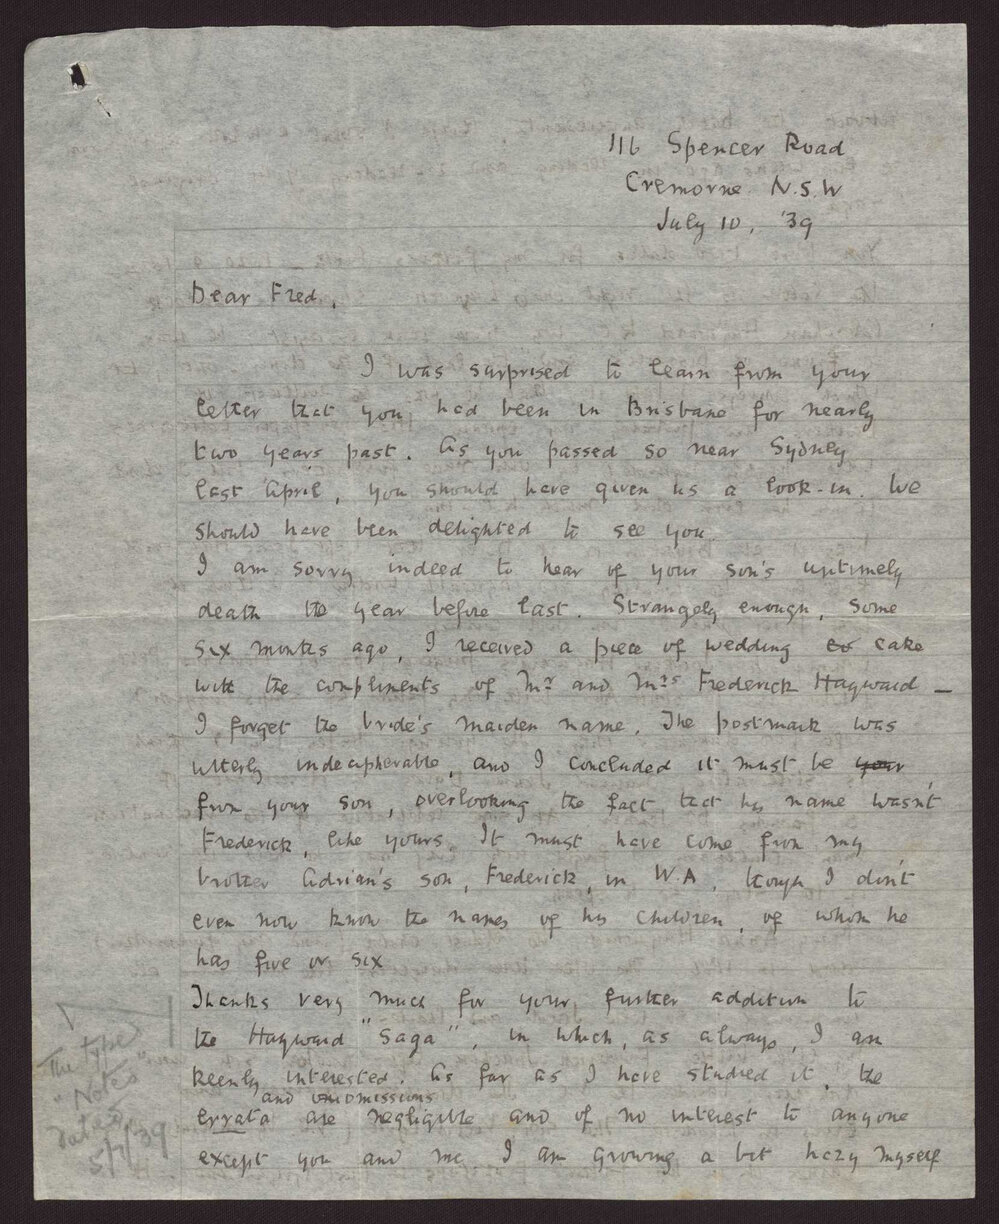 116 Spencer Road
Cremorne. N.S.W
July 10, '39
Dear Fred,
I was surprised to learn from your
letter that you had been in Brisbane for nearly
two years past. As you passed so near Sydney
last April, you should have given us a look-in. We
should have been delighted to see you.
I am sorry indeed to hear of your son's untimely
death the year before last. Strangely enough, some
six months ago, I received a piece of wedding cake
with the compliments of Mr and Mrs Frederick Hayward —
I forget the bride's maiden name. The postmark was
utterly indecipherable, and I concluded it must be your
from your son, overlooking the fact that his name wasn't
Frederick, like yours. It must have come from my
brother Adrian's son, Frederick, in W.A, though I don't
even now know the names of his children, of whom he
has five or six
Thanks very much for your further addition to
the Hayward "Saga", in which, as always, I am
keenly interested. As far as I have studied it, the
and omissions
errata are negligible and of no interest to anyone
except you and me. I am growing a bit hazy myself
The type
"Notes"
dated
5/7/39